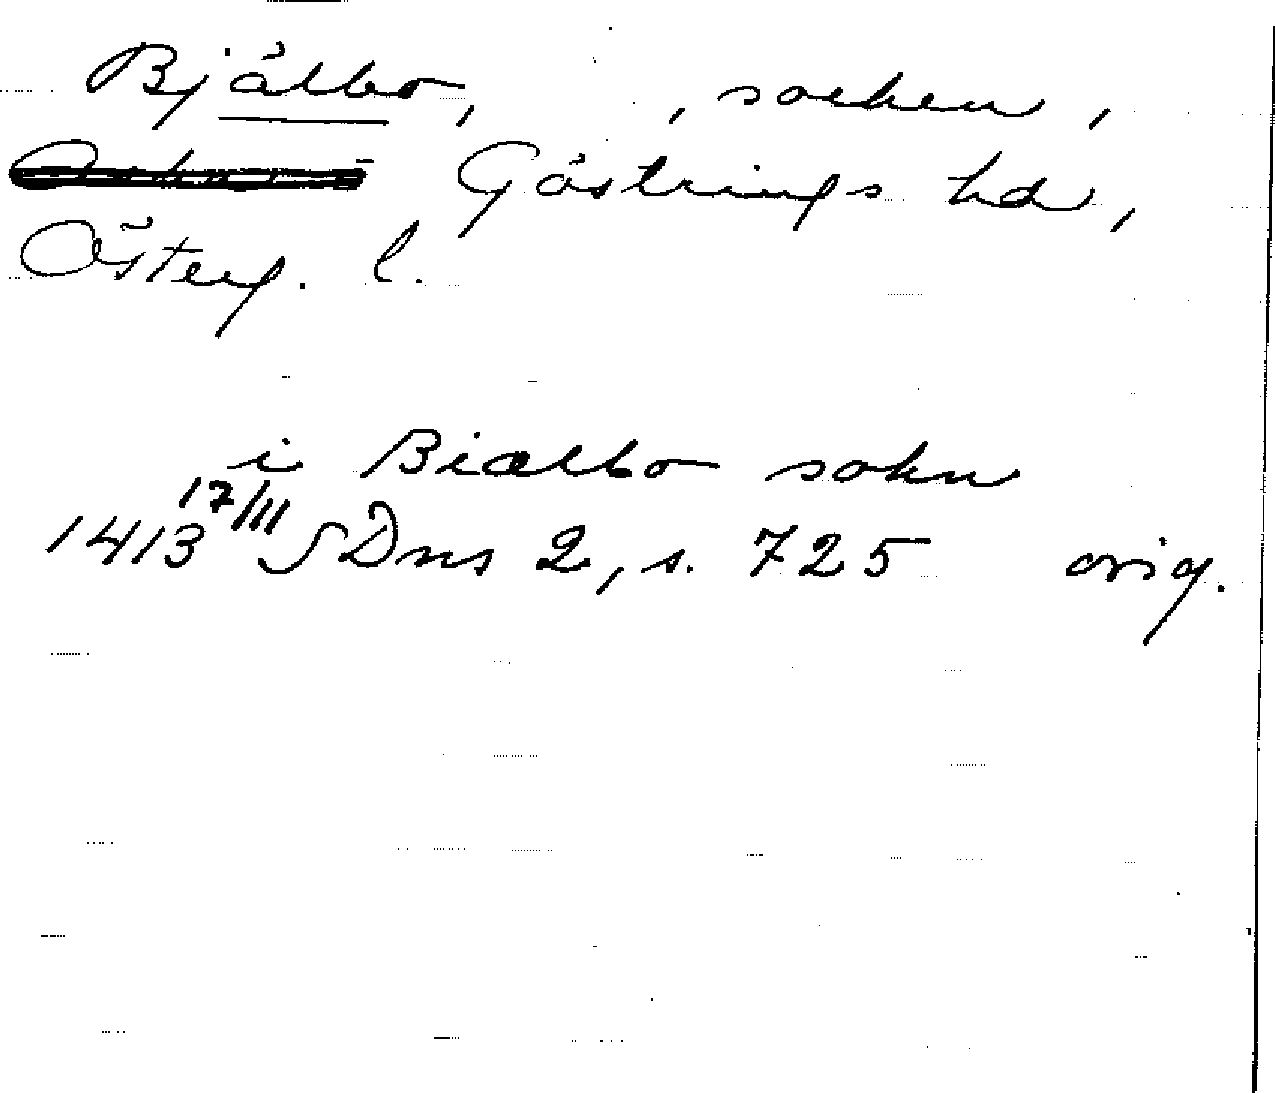 Bjälbo, , socken,
Göstrings hd,
Österg. l.
i Biælbo sokn
1413 17/III SDns 2, s. 725 orig.